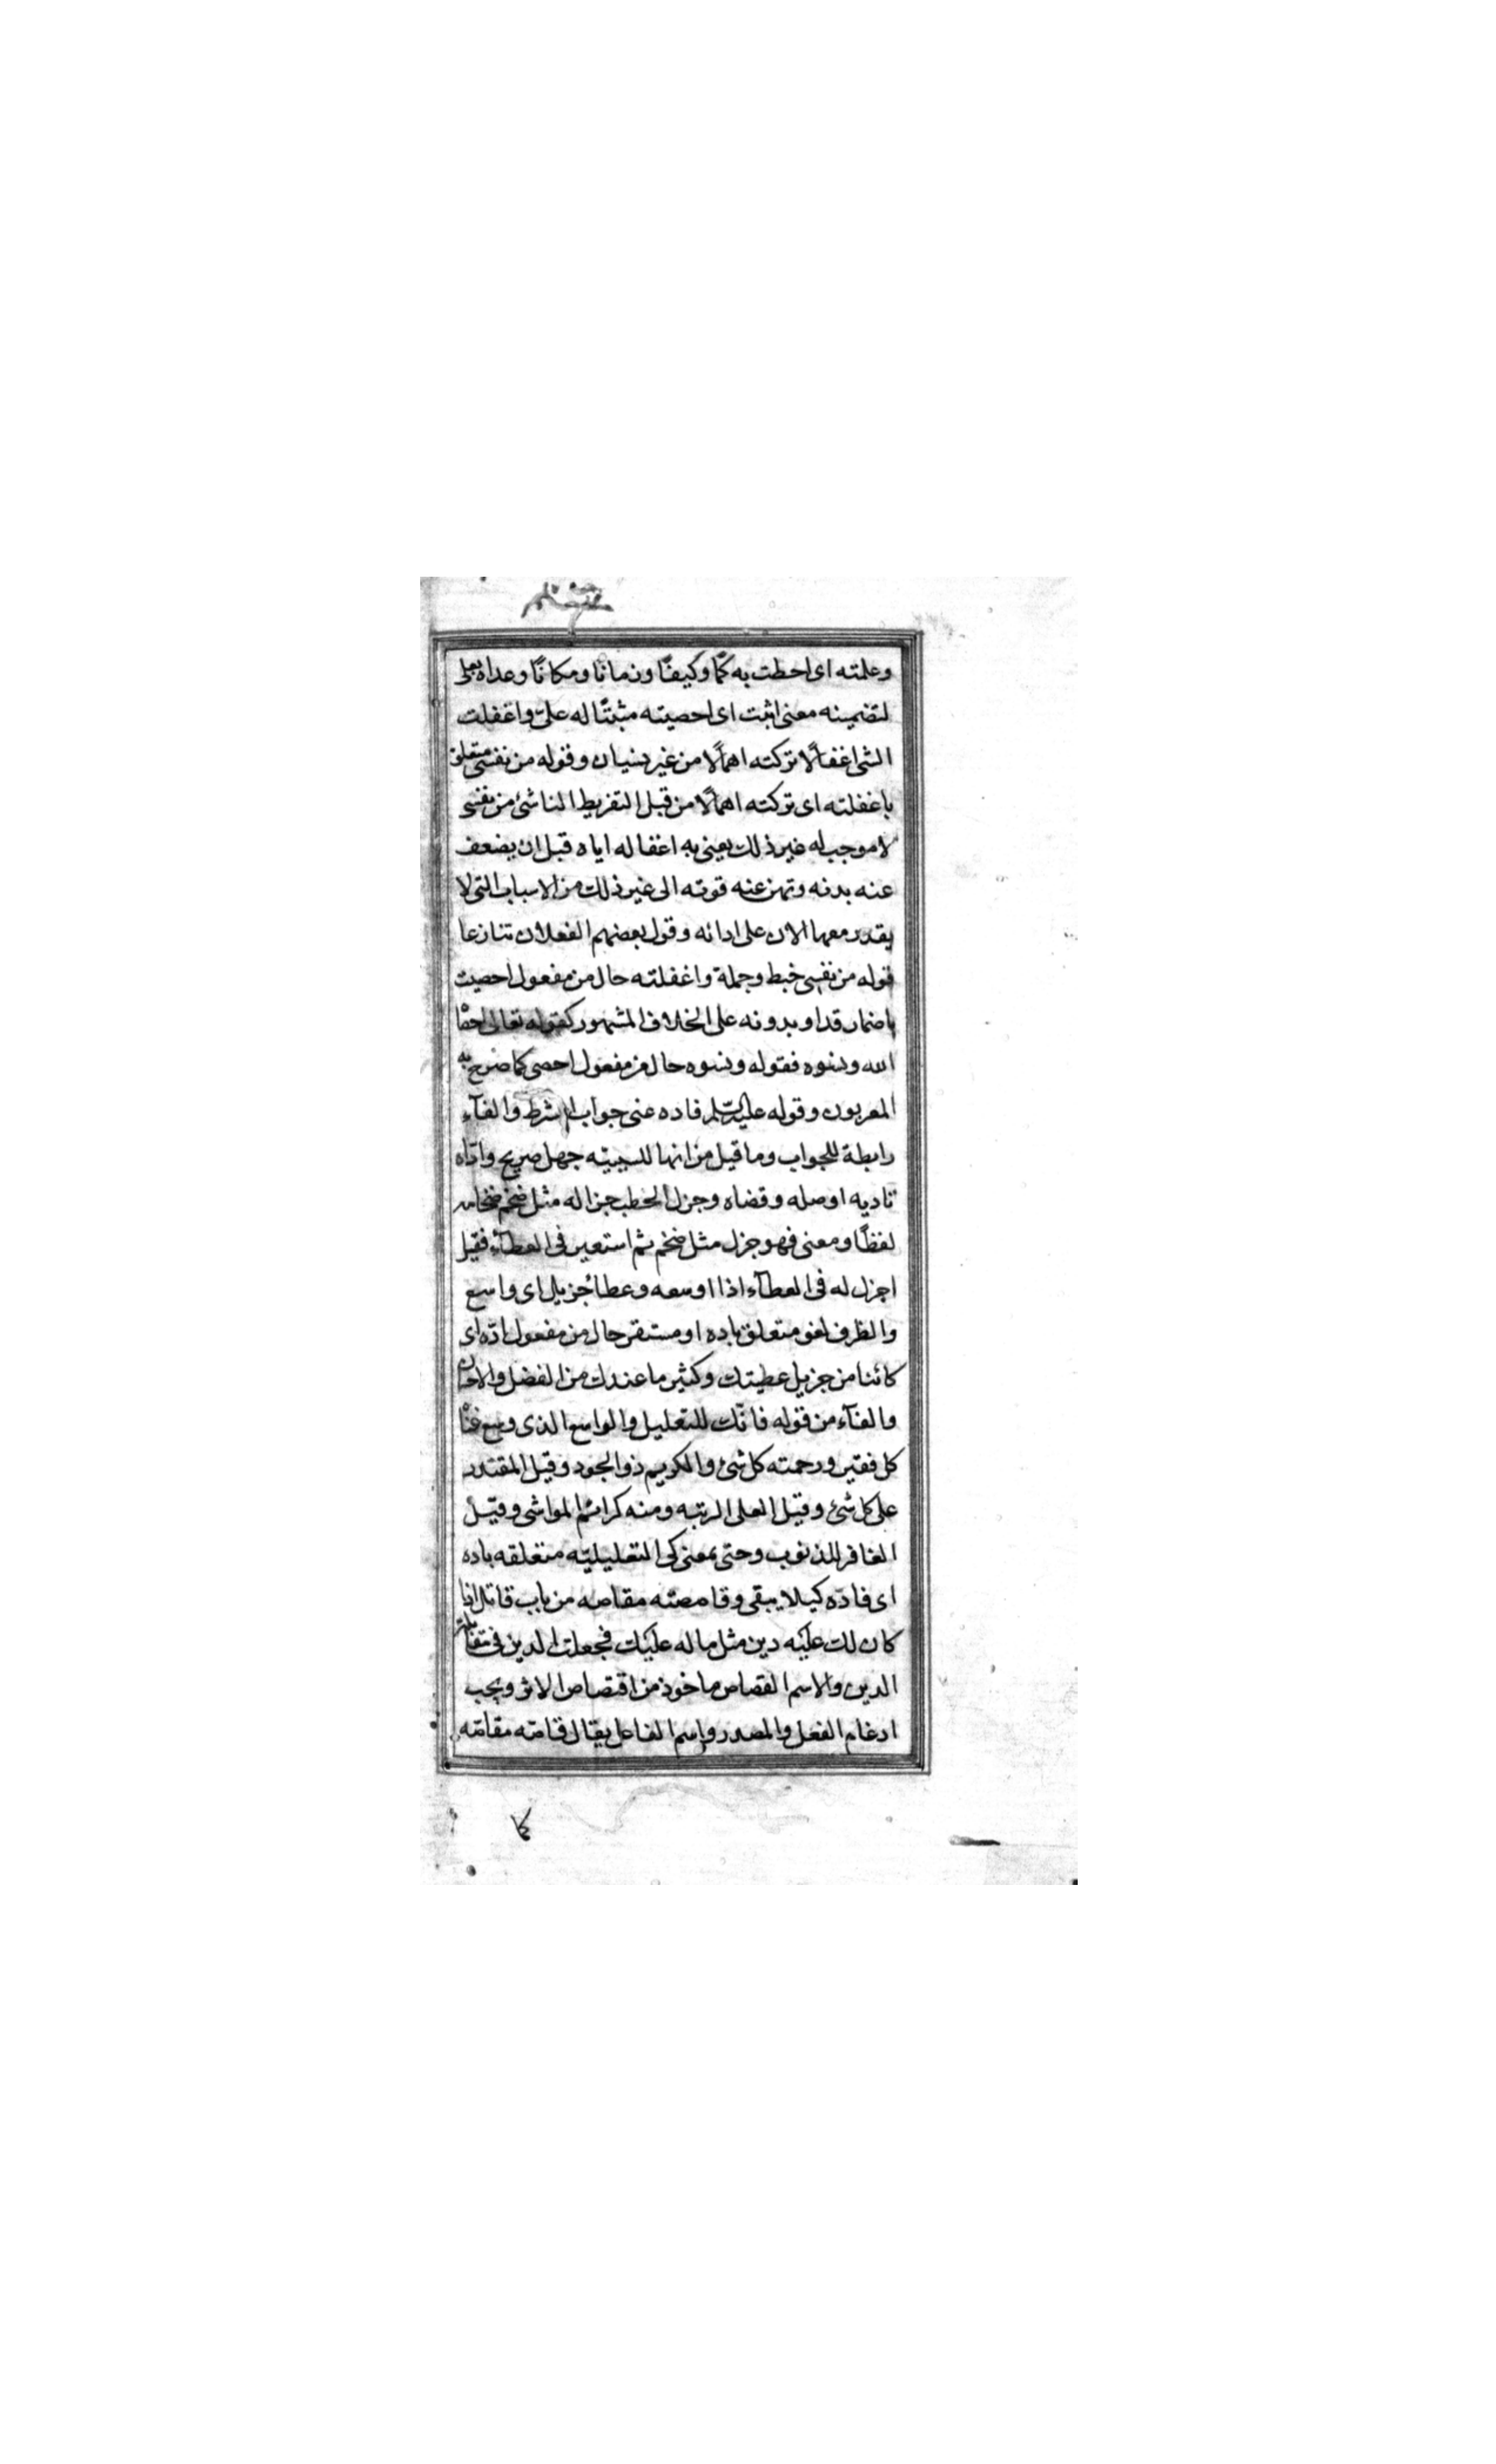 وعلمته اى احطت به كمّا وكيفًا وزمانًا ومكانًا وعداه بعلى
لتضمينه معنى اثبت اى احصيته مثبتًا له علىّ واغفلت
الشى اغفالًا تركته اهمالًا من غير نسيان وقوله من نفسى متعلق
باغفلته اى تركته اهمالًا من قبل التفريط الناشئ من نفسى
لا موجب له غير ذلك يعنى به اغفاله اياه قبل ان يضعف
عنه بدنه وتهن عنه قوته الى غير ذلك من الاسباب التى لا
يقدر معها الان على ادائه وقول بعضهم الفعلان تنازعا
قوله من نفسى خبط وجملة واغفلته حال من مفعول احصيت
باضمار قد او بدونه على الخلاف المشهور كقوله تعالى احصاه
الله ونسوه فقوله ونسوه حال من مفعول احصى كما صرح به
المعربون وقوله عليه السّلم فاده عنى جواب الشرط والفآء
رابطة للجواب وما قيل من انها للسببيّه جهل صريح وادّاه
تاديه اوصله وقضاه وجزل الحطب جزاله مثل ضخم ضخامه
لفظًا ومعنى فهو جزل مثل ضخم ثم استعير فى العطآء فقيل
اجزل له فى العطآء اذا اوسعه وعطاء جزيل اى واسع
والظرف لغو متعلق باده او مستقر حال من مفعول ادّه اى
كائنا من جزيل عطيتك وكثير ما عندك من الفضل والاحسان
والفآء من قوله فانّك للتعليل والواسع الذى وسع غناه
كل فقير ورحمته كل شئ والكريم ذو الجود وقيل المقتدر
على كل شئ وقيل العلى الرتبه ومنه كرائم المواشى وقيل
الغافر للذنوب وحتى بمعنى كى التعليليّه متعلقه باده
اى فادّه كيلا يبقى وقاصصته مقاصه من باب قاتل اذا
كان لك عليه دين مثل ماله عليك فجعلت الدين فى مقابلة
الدين والاسم القصاص ماخوذ من اقتصاص الاثر ويجب
ادغام الفعل والمصدر واسم الفاعل يقال قاصّه مقاصّه
كما